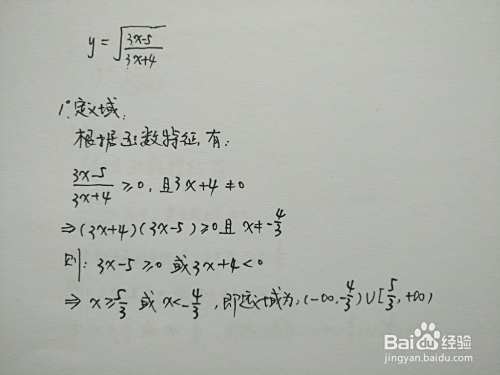 y = √((3x-5)/(3x+4))
1°.定义域:
根据函数特征,有:
(3x-5)/(3x+4) ≥0,且3x+4≠0
⇒(3x+4)(3x-5)≥0且 x≠-4/3
则: 3x-5≥0 或3x+4<0
⇒ x≥5/3 或 x<-4/3 ,即定义域为:(-∞,-4/3)∪[5/3,+∞)
Baidu经验
jingyan.baidu.com